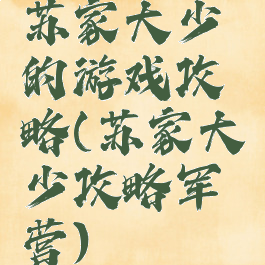 苏家大少
的游戏攻
略(苏家大
少攻略军
营)